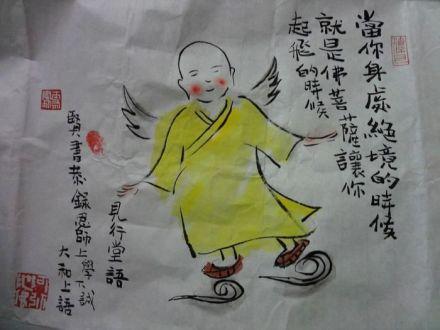 當你身處絕境的時候
就是佛菩薩讓你
起飛的時候
見行堂語
賢書恭錄恩師上學下誠
大和上語